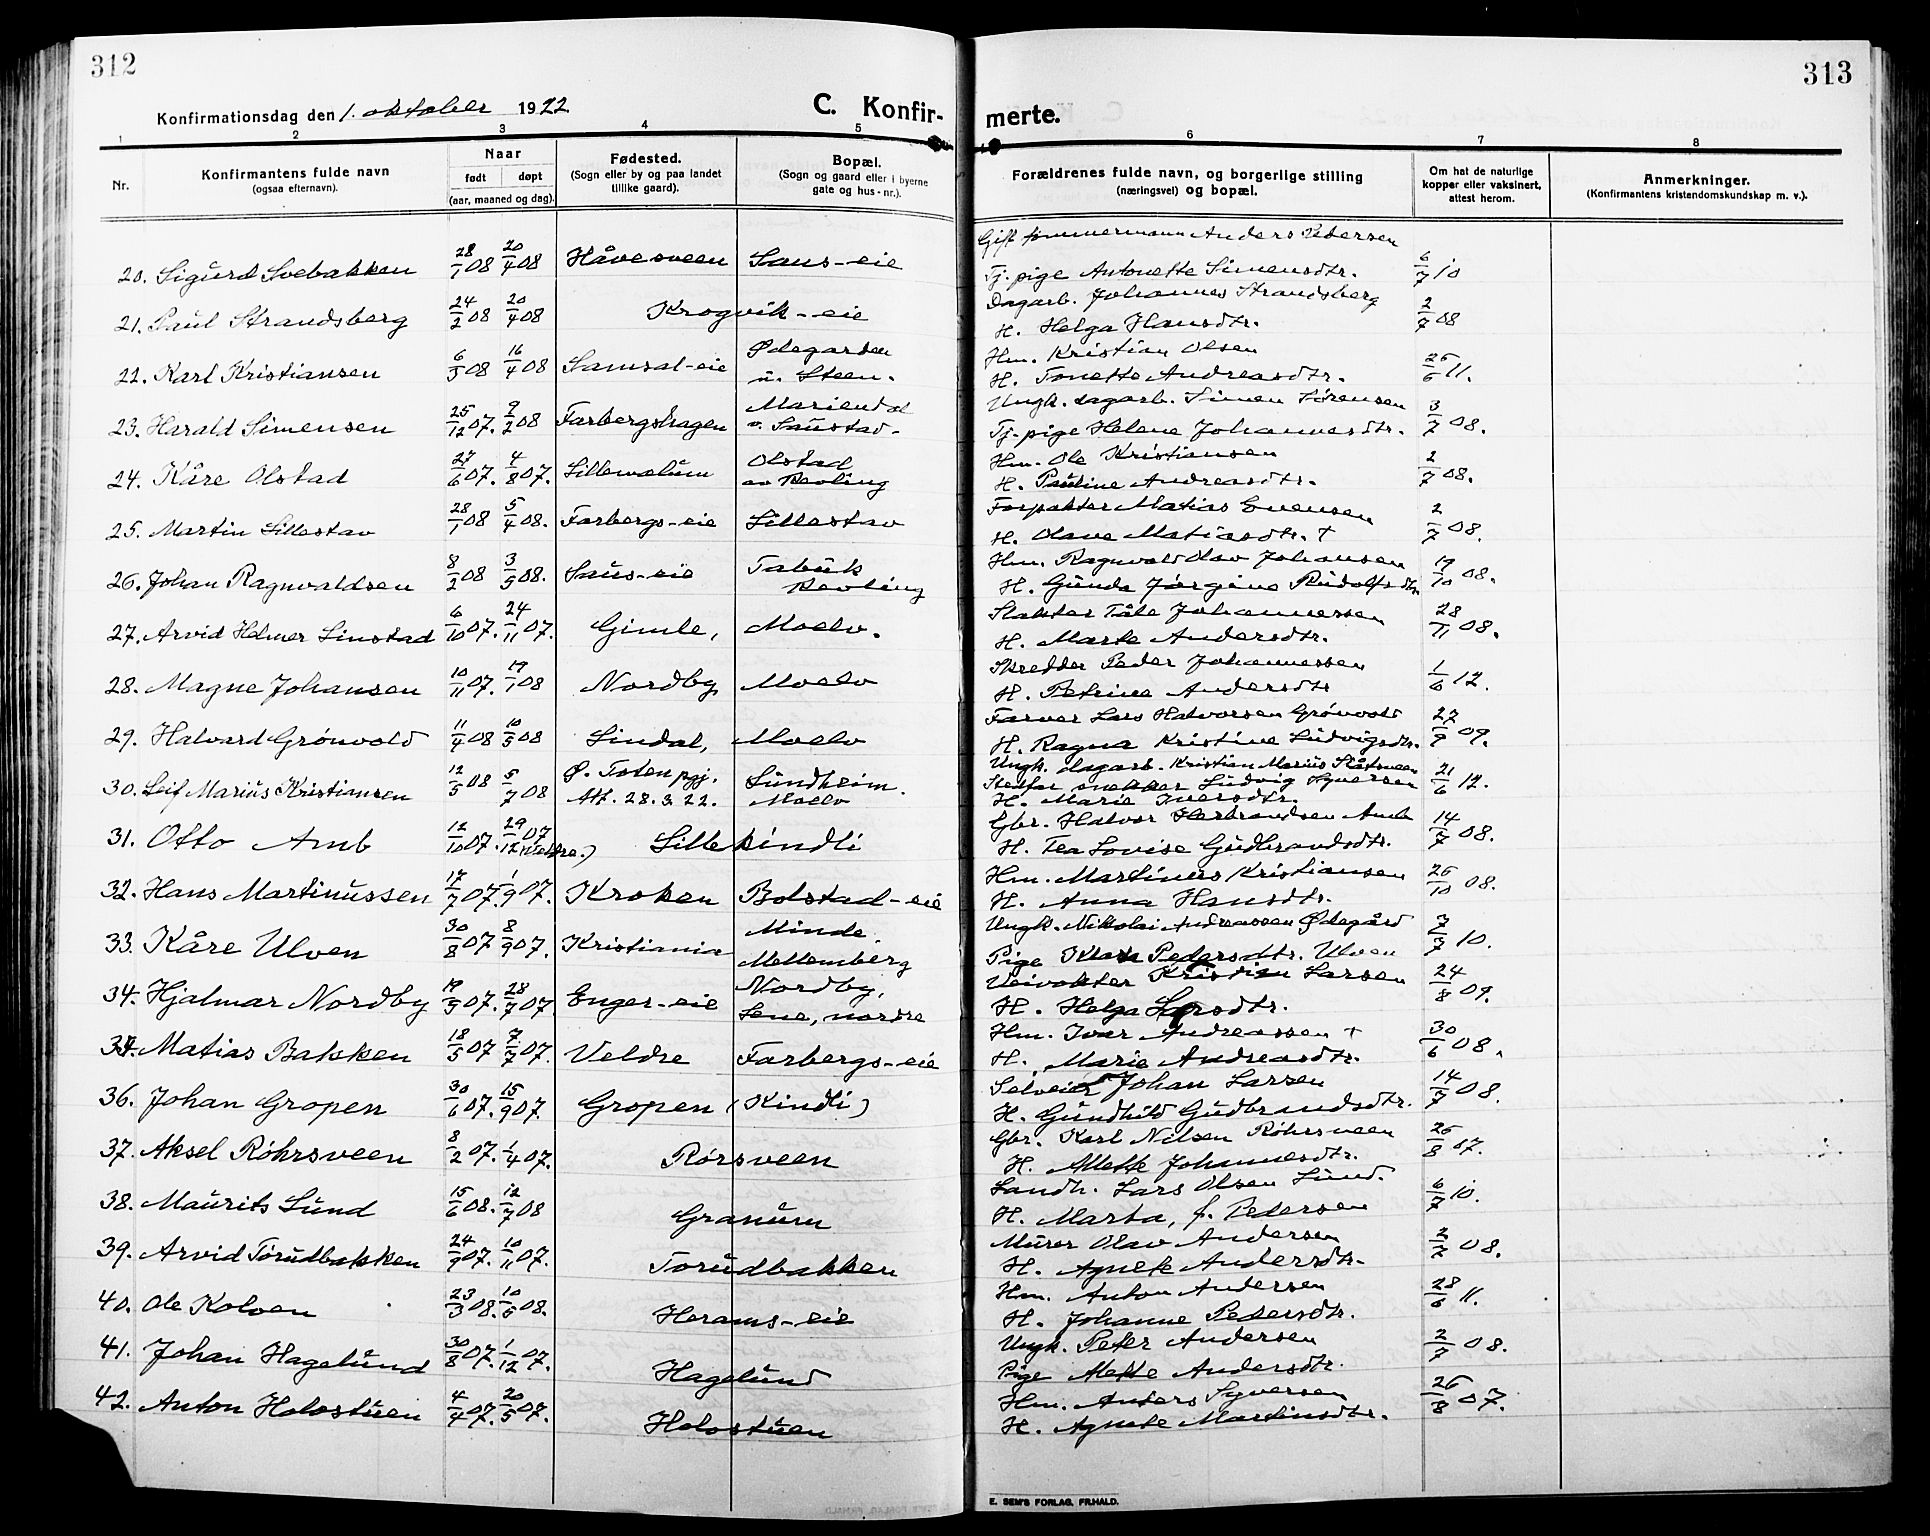 312
313
Konfirmationsdag den 1. oktober 1922
C. Konfir-
merte.
1 2 3 4 5 6 7 8
Nr.
Konfirmantens fulde navn
(ogsaa efternavn).
Naar
født døpt
(aar, maaned og dag).
Fødested.
(Sogn eller by og paa landet
tillike gaard).
Bopæl.
(Sogn og gaard eller i byerne
gate og hus-nr.).
Forældrenes fulde navn, og borgerlige stilling
(næringsvei) og bopæl.
Om hat de naturlige
kopper eller vaksinert,
attest herom.
Anmerkninger.
(Konfirmantens kristendomskundskap m. v.).
Gift tømmermann Anders Pedersen
20. Sigurd Svebakken 28/1 08 20/4 08 Håvesveen Saus-eie Tj. pige Antonette Simensdtr. 6/7 10
Dagarb. Johannes Strandsberg
21. Paul Strandsberg 24/2 08 20/4 08 Krogvik-eie H. Helga Hansdtr. 2/7 08
Ødegarden Hm. Kristian Olsen
22. Karl Kristiansen 6/3 08 16/4 08 Samsal-eie u. Steen. H. Tonette Andreasdtr. 25/6 11.
Mariendal Ungk. dagarb. Simen Sørensen
23. Harald Simensen 25/12 07. 9/2 08 Farbergshagen v. Saustad. Tj. pige Helene Johannesdtr. 3/7 08.
Olstad Hm. Ole Kristiansen
24. Kåre Olstad 27/6 07. 4/8 07. Lillemælum av Revling H. Pauline Andreasdtr. 2/7 08.
Forpakter Matias Evensen
25. Martin Lillestav 28/1 08 5/4 08. Farbergs-eie Lillestav H. Olava Matiasdtr. † 2/7 08.
Tabuk Hm. Ragnvald Olav Johansen
26. Johan Ragnvaldsen 8/2 08 3/5 08. Saus-eie Revling H. Gunda Jørgine Rudolfsdtr. 19/10 08.
Slakter Tåle Johannessen
27. Arvid Helmer Linstad 6/10 07. 24/11 07. Gimle, Moelv. H. Marte Andersdtr. 28/11 08.
Skredder Peder Johannessen
28. Magne Johansen 10/11 07. 19/1 08 Nordby Moelv H. Petrine Andersdtr 1/6 12.
Farver Lars Halvorsen Grönvold
29. Halvard Grönvold 11/4 08 10/5 08 Lindal, Moelv H. Ragna Kristine Ludvigsdtr. 27/9 09.
Ø. Toten pgj. Sundheim. Ungk. dagarb. Kristian Marius Slåtsveen
30. Leif Marius Kristiansen 12/5 08 5/7 08 Att. 28.3.22. Moelv Stedfar snekker Ludvig Syversen 21/6 12.
H. Marie Iversdtr.
Gbr. Halvor Herbrandsen Amb
31. Otto Amb 12/10 07. 29/12 07 (Veldre.) Lillekindli H. Tea Lovise Gudbrandsdtr. 14/7 08.
Hm. Martinus Kristiansen
32. Hans Martinussen 17/7 07. 1/9 07. Kroken Bolstad-eie H. Anna Hansdtr. 26/10 08.
Minde. Ungk. Nikolai Andreassen Ødegård
33. Kåre Ulven 30/8 07. 8/9 07. Kristiania Mellemberg Pige Klara Pedersdtr. Ulven 7/7 10.
Nordby, Veivokter Kristian Larsen
34. Hjalmar Nordby 19/5 07. 28/7 07. Enger-eie Lene, nordre H. Helga Larsdtr. 24/8 09.
Hm. Ivar Andreassen †
35. Matias Bakken 18/5 07 7/7 07. Veldre Farbergs-eie H. Marie Andreasdtr. 30/6 08.
Selveier Johan Larsen
36. Johan Gropen 30/6 07. 15/9 07. Gropen (Kindli) H. Gundhild Gudbrandsdtr. 14/7 08.
Gbr. Karl Nilsen Röhrsveen
37. Aksel Röhrsveen 8/2 07. 1/4 07. Rörsveen H. Mette Johannesdtr. 26/8 07.
Landh. Lars Olsen Lund.
38. Maurits Lund 15/6 08. 12/7 08 Granum H. Marta, f. Pedersen 6/7 10.
Murer Olav Andersen
39. Arvid Torudbakken 24/9 07. 10/11 07. Torudbakken H. Agnete Andersdtr. 2/7 08.
Hm. Anton Andersen
40. Ole Kolven 23/3 08. 10/5 08. Herams-eie H. Johanne Pedersdtr. 28/6 11.
Ungk. Peter Andersen
41. Johan Hagelund 30/8 07. 1/12 07. Hagelund Pige Mette Andersdtr. 2/7 08.
Hm. Anders Syversen
42. Anton Holostuen 4/4 07. 20/5 07. Holostuen H. Agnete Martinsdtr. 26/8 07.
E. SEM'S FORLAG, FR.HALD.